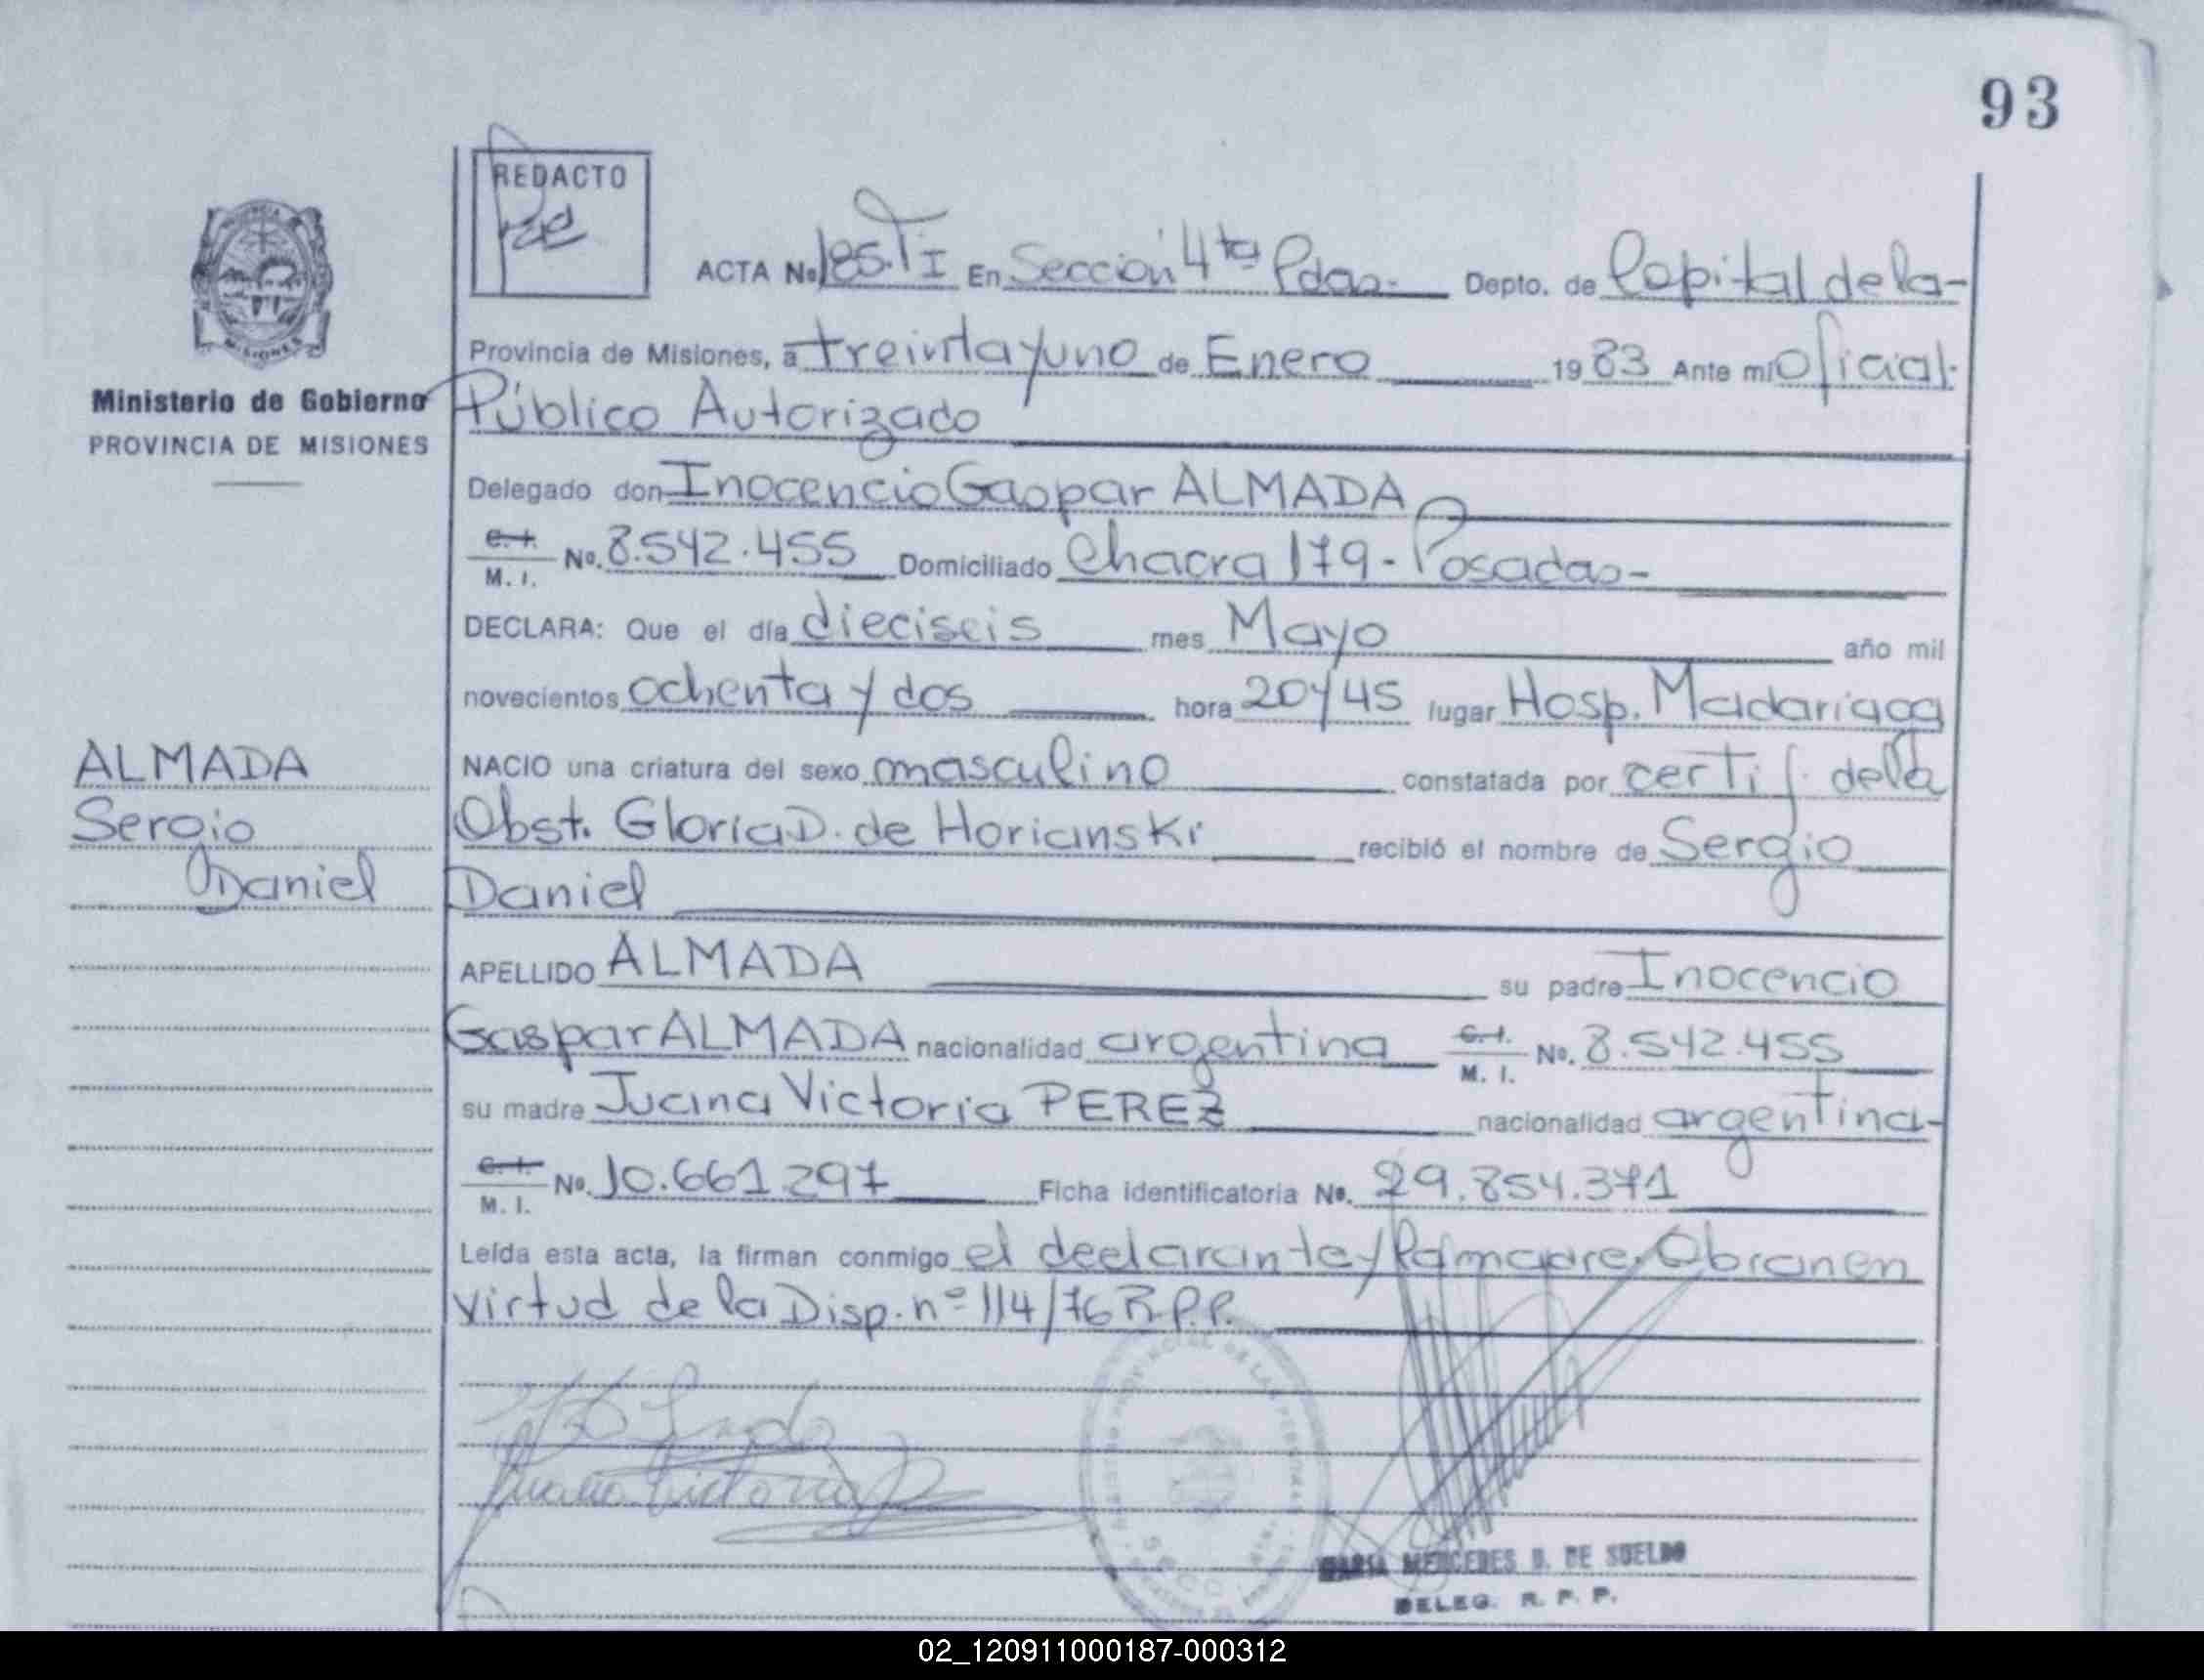 93
REDACTO
ACTA No. 185. TI En Sección 4ta Pdas. Depto. de Capital de la-
Provincia de Misiones, a treinta y uno de Enero 1983 Ante mi Oficial
Ministerio de Gobierno
PROVINCIA DE MISIONES
Público Autorizado
Delegado don Inocencio Gaspar ALMADA
C. I.
M. I. No. 8.542.455 Domiciliado Chacra 179 - Posadas-
DECLARA: Que el día dieciseis mes Mayo año mil
novecientos ochenta y dos hora 20 y 45 lugar Hosp. Madariaga
NACIO una criatura del sexo masculino constatada por certif. de la
Obst. Gloria D. de Horianski recibió el nombre de Sergio
Daniel
ALMADA
Sergio
Daniel
APELLIDO ALMADA su padre Inocencio
Gaspar ALMADA nacionalidad argentina C. I. M. I. No. 8.542.455
su madre Juana Victoria PEREZ nacionalidad argentina-
C. I. M. I. No. 10.661.297 Ficha identificatoria No. 29.854.371
Leída esta acta, la firman conmigo el declarante y la madre. Obran en
virtud de la Disp. nº 114/76 R.P.P.
Juana Victoria
MARIA MERCEDES D. DE SUELDO
DELEG. R. P. P.
02_120911000187-000312